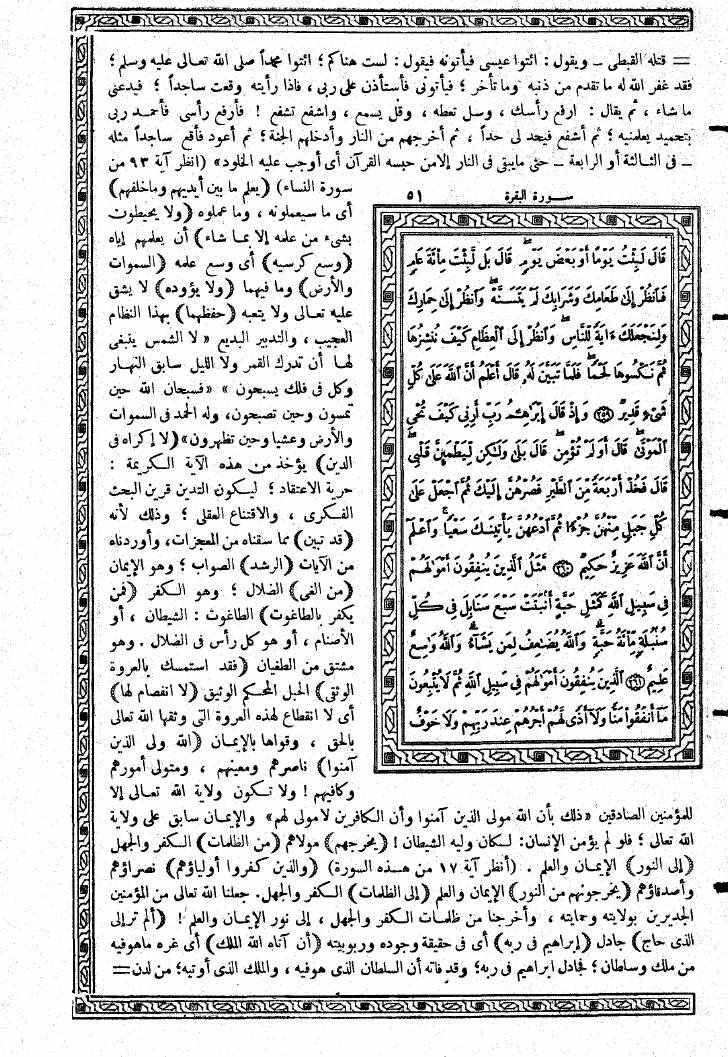 = قتله القبطى – ويقول : ائتوا عيسى فيأتونه فيقول : لست هناكم ؛ ائتوا محمداً صلى الله تعالى عليه وسلم ؛
فقد غفر الله له ما تقدم من ذنبه وما تأخر ؛ فيأتونى فأستأذن على ربى ، فاذا رأيته وقعت ساجداً ؛ فيدعنى
ما شاء ، ثم يقال : ارفع رأسك ، وسل تعطه ، وقل يسمع ، واشفع تشفع ! فأرفع رأسى فأحمد ربى
بتحميد يعلمنيه ؛ ثم أشفع فيحد لى حداً ، ثم أخرجهم من النار وأدخلهم الجنة ؛ ثم أعود فأقع ساجداً مثله
– فى الثالثة أو الرابعة – حتى مايبقى فى النار إلامن حبسه القرآن أى أوجب عليه الخلود» (انظر آية ٩٣ من
سورة النساء) (يعلم ما بين أيديهم وماخلفهم)
أى ما سيعملونه ، وما عملوه (ولا يحيطون
بشىء من علمه إلا بما شاء) أن يعلمهم إياه
(وسع كرسيه) أى وسع علمه (السموات
والأرض) وما فيهما (ولا يؤوده) لا يشق
عليه تعالى ولا يتعبه (حفظهما) بهذا النظام
العجيب ، والتدبير البديع «لا الشمس ينبغى
لها أن تدرك القمر ولا الليل سابق النهار
وكل فى فلك يسبحون» «فسبحان الله حين
تمسون وحين تصبحون، وله الحمد فى السموات
والأرض وعشيا وحين تظهرون» (لا إكراه فى
الدين) يؤخذ من هذه الآية الكريمة :
حرية الاعتقاد ؛ ليكون التدين قرين البحث
الفكرى ، والاقتناع العقلى ؛ وذلك لأنه
(قد تبين) بما سقناه من المعجزات، وأوردناه
من الآيات (الرشد) الصواب ؛ وهو الإيمان
(من الغى) الضلال ؛ وهو الكفر (فمن
يكفر بالطاغوت) الطاغوت : الشيطان ، أو
الأصنام ، أو هو كل رأس فى الضلال . وهو
مشتق من الطغيان (فقد استمسك بالعروة
الوثقى) الحبل المحكم الوثيق (لا انفصام لها)
أى لا انقطاع لهذه العروة التى وثقها الله تعالى
بالحق ، وقواها بالإيمان (الله ولى الذين
آمنوا) ناصرهم ومعينهم ، ومتولى أمورهم
وكافيهم ! ولا تكون ولاية الله تعالى إلا
سورة البقرة ٥١
قَالَ لَبِثْتُ يَوْمًا أَوْ بَعْضَ يَوْمٍ قَالَ بَل لَّبِثْتَ مِاْئَةَ عَامٍ
فَٱنظُرْ إِلَىٰ طَعَامِكَ وَشَرَابِكَ لَمْ يَتَسَنَّهْ وَٱنظُرْ إِلَىٰ حِمَارِكَ
وَلِنَجْعَلَكَ ءَايَةً لِّلنَّاسِ وَٱنظُرْ إِلَى ٱلْعِظَامِ كَيْفَ نُنشِزُهَا
ثُمَّ نَكْسُوهَا لَحْمًا فَلَمَّا تَبَيَّنَ لَهُۥ قَالَ أَعْلَمُ أَنَّ ٱللَّهَ عَلَىٰ كُلِّ
شَىْءٍ قَدِيرٌ ٢٥٩ وَإِذْ قَالَ إِبْرَٰهِـۧمُ رَبِّ أَرِنِى كَيْفَ تُحْىِ
ٱلْمَوْتَىٰ قَالَ أَوَلَمْ تُؤْمِن قَالَ بَلَىٰ وَلَٰكِن لِّيَطْمَئِنَّ قَلْبِى
قَالَ فَخُذْ أَرْبَعَةً مِّنَ ٱلطَّيْرِ فَصُرْهُنَّ إِلَيْكَ ثُمَّ ٱجْعَلْ عَلَىٰ
كُلِّ جَبَلٍ مِّنْهُنَّ جُزْءًا ثُمَّ ٱدْعُهُنَّ يَأْتِينَكَ سَعْيًا وَٱعْلَمْ
أَنَّ ٱللَّهَ عَزِيزٌ حَكِيمٌ ٢٦٠ مَّثَلُ ٱلَّذِينَ يُنفِقُونَ أَمْوَٰلَهُمْ
فِى سَبِيلِ ٱللَّهِ كَمَثَلِ حَبَّةٍ أَنۢبَتَتْ سَبْعَ سَنَابِلَ فِى كُلِّ
سُنۢبُلَةٍ مِّاْئَةُ حَبَّةٍ وَٱللَّهُ يُضَٰعِفُ لِمَن يَشَآءُ وَٱللَّهُ وَٰسِعٌ
عَلِيمٌ ٢٦١ ٱلَّذِينَ يُنفِقُونَ أَمْوَٰلَهُمْ فِى سَبِيلِ ٱللَّهِ ثُمَّ لَا يُتْبِعُونَ
مَآ أَنفَقُوا۟ مَنًّا وَلَآ أَذًى لَّهُمْ أَجْرُهُمْ عِندَ رَبِّهِمْ وَلَا خَوْفٌ
للمؤمنين الصادقين «ذلك بأن الله مولى الذين آمنوا وأن الكافرين لامولى لهم» والإيمان سابق على ولاية
الله تعالى ؛ فلو لم يؤمن الإنسان: لكان وليه الشيطان ! (يخرجهم) مولاهم (من الظلمات) الكفر والجهل
(إلى النور) الإيمان والعلم . (أنظر آية ١٧ من هذه السورة) (والذين كفروا أولياؤهم) نصراؤهم
وأصدقاؤهم (يخرجونهم من النور) الإيمان والعلم (إلى الظلمات) الكفر والجهل. جعلنا الله تعالى من المؤمنين
الجديرين بولايته وحمايته ، وأخرجنا من ظلمات الكفر والجهل ، إلى نور الإيمان والعلم ! (ألم تر إلى
الذى حاج) جادل (إبراهيم فى ربه) أى فى حقيقة وجوده وربوبيته (أن آتاه الله الملك) أى غره ماهوفيه
من ملك وسلطان ؛ فجادل ابراهيم فى ربه؛ وقد فاته أن السلطان الذى هوفيه ، والملك الذى أوتيه؛ من لدن =